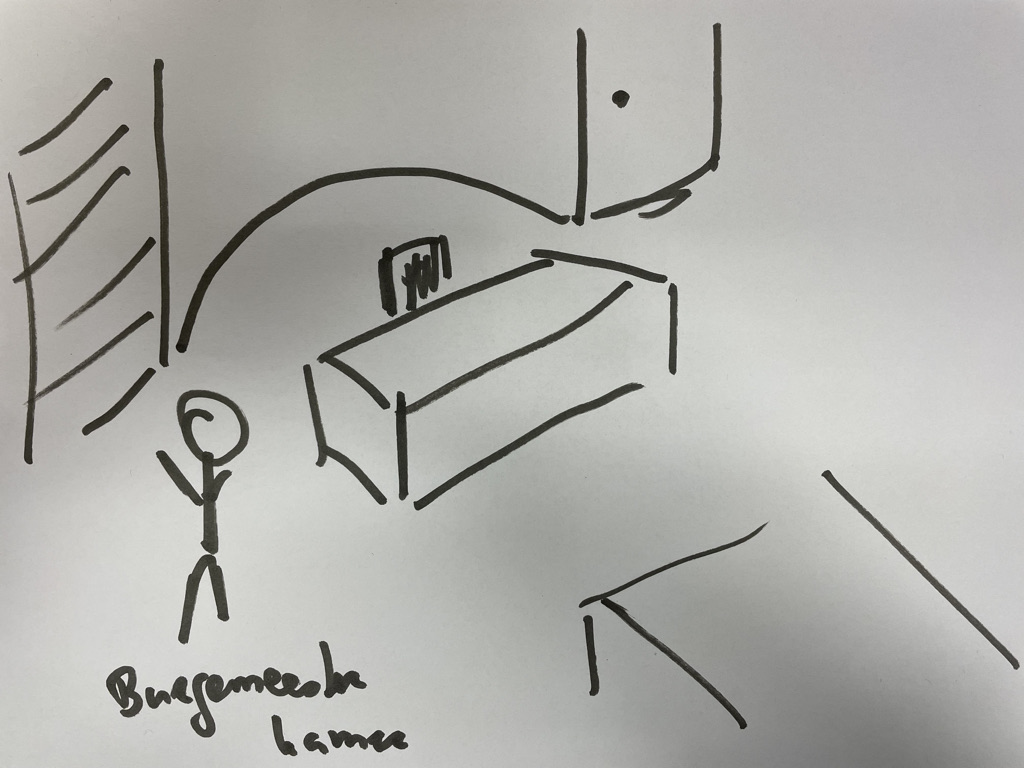 Burgemeester
kamer